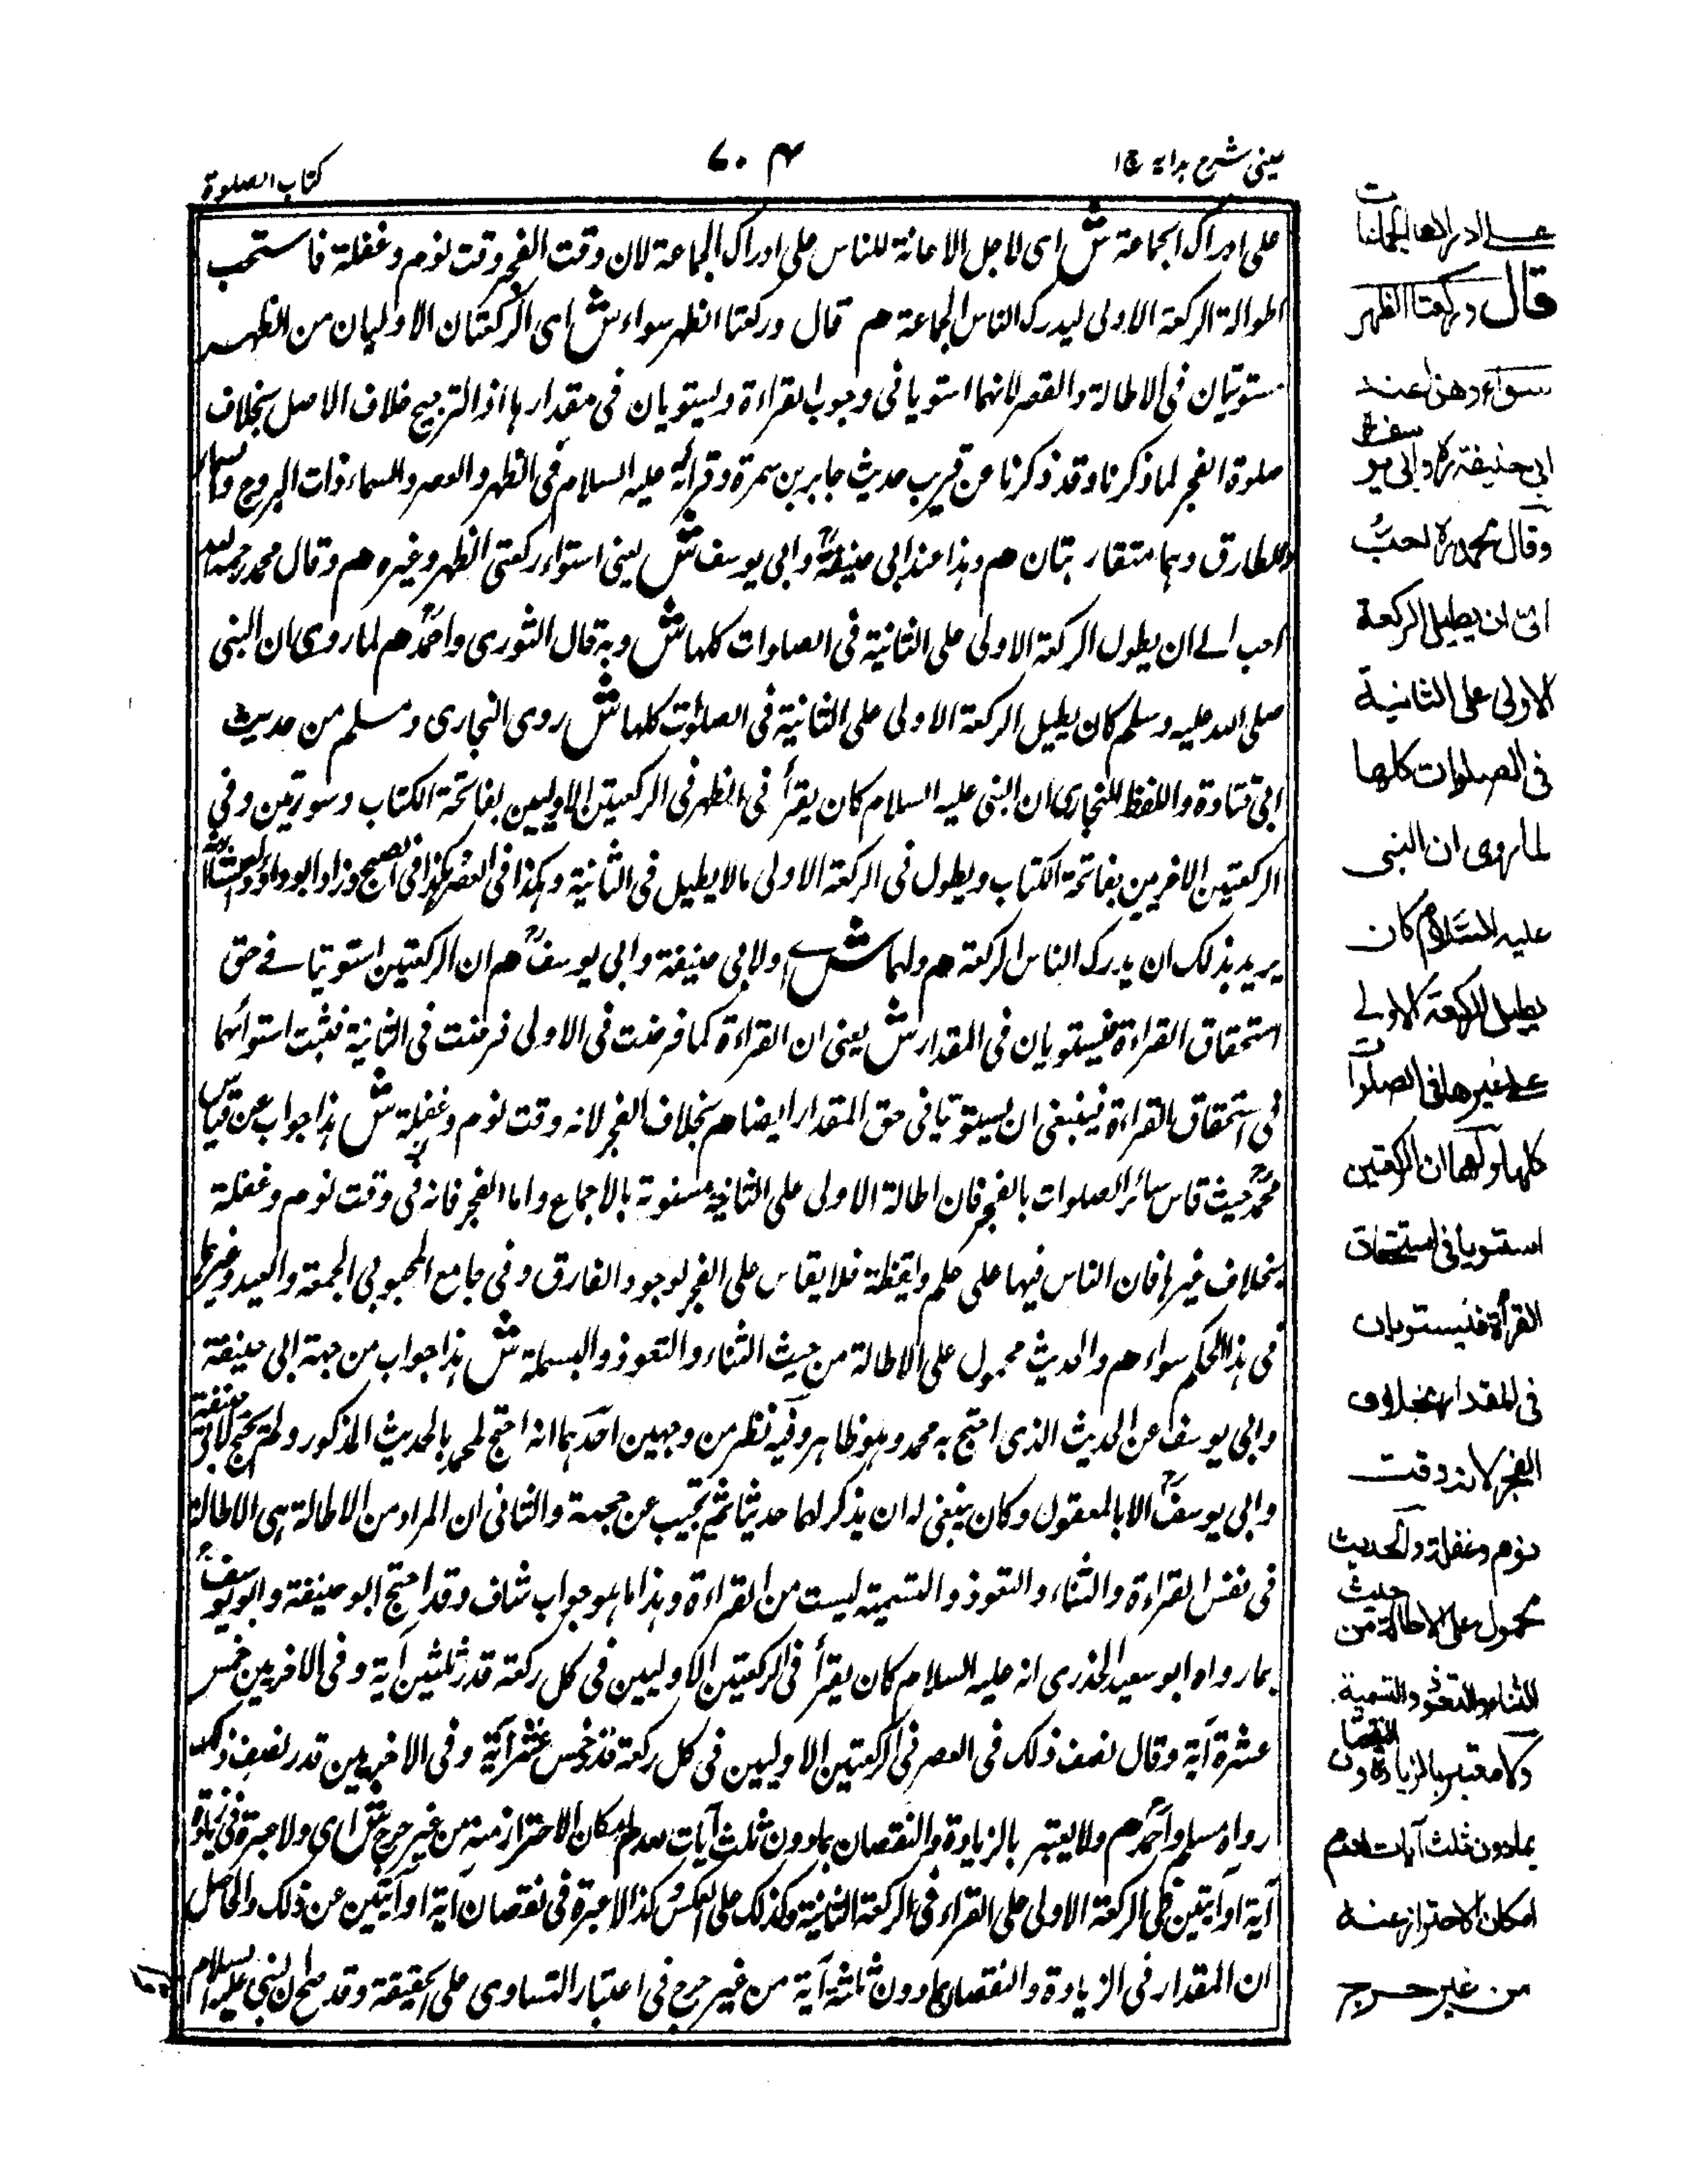 عینی شرح ہدایہ ج ۱
۷۰۴
کتاب الصلوة
على ادراك الجماعة ش اى لاجل الاعانة للناس على ادراك الجماعة لان وقت الفجر وقت نوم و غفلة فاستحب
اطوالة الركعة الاولى ليدرك الناس الجماعة هم قال وركعتا الظهر سواء ش اى الركعتان الاوليان من الظهر
مستويتان فى الاطالة والقصر لانهما استويا فى وجوب القراءة ويستويان فى مقدارها اذ الترجيح خلاف الاصل بخلاف
صلوة الفجر لما ذكرنا وقد ذكرنا عن قريب حديث جابر بن سمرة وقرأته عليه السلام فى الظهر والعصر والسماء ذات البروج والسماء
والطارق وهما متقاربتان هم وهذا عند ابى حنيفةؒ وابى يوسف ش يعنى استواء ركعتى الظهر وغيره هم وقال محمد رحمه الله
احب الے ان يطول الركعة الاولى على الثانية فى الصلوات كلها ش وبه قال الثورى واحمدؒ هم لما روى ان النبى
صلى الله عليه وسلم كان يطيل الركعة الاولى على الثانية فى الصلوٰت كلها ش روى البخارى ومسلم من حديث
ابى قتادة واللفظ للبخارى ان النبى عليه السلام كان يقرأ فى الظهر فى الركعتين الاوليين بفاتحة الكتاب وسورتين وفى
الركعتين الاخريين بفاتحة الكتاب ويطول فى الركعة الاولى مالا يطيل فى الثانية وهكذا فى العصر هكذا فى الصبح وزاد ابو داود
يريد بذلك ان يدرك الناس الركعة هم ولهما ش اى ولابى حنيفة وابى يوسفؒ هم ان الركعتين استويا فے حق
استحقاق القراءة فيستويان فى المقدار ش يعنى ان القراءة كما فرضت فى الاولى فرضت فى الثانية فثبت استوائهما
فى استحقاق القراءة فينبغى ان يستويا فى حق المقدار ايضا هم بخلاف الفجر لانه وقت نوم وغفلة ش هذا جواب عن قياس
محمدؒ حيث قاس سائر الصلوات بالفجر فان اطالة الاولى على الثانية مسنونة بالاجماع واما الفجر فانه فى وقت نوم وغفلة
بخلاف غيرها فان الناس فيها على علم ويقظة فلا يقاس على الفجر لوجود الفارق وفى جامع المحبوبى الجمعة والعيد وغيرهما
فى هذا الحكم سواء هم والحديث محمول على الاطالة من حيث الثناء والتعوذ والبسملة ش هذا جواب من جهة ابى حنيفة
وابى يوسفؒ عن الحديث الذى احتج به محمد وهو ظاهر وفيه نظر من وجهين احدهما انه احتج لمحمد بالحديث المذكور ولم يحتج لابى حنيفة
وابى يوسفؒ الا بالمعقول وكان ينبغى له ان يذكر لهما حديثا ثم يجيب عن حجته والثانى ان المراد من الاطالة هى الاطالة
فى نفس القراءة والثناء والتعوذ والتسمية ليست من القراءة وهذا ما هو جواب شاف وقد احتج ابو حنيفة وابو يوسفؒ
بما رواه ابو سعيد الخدرى انه عليه السلام كان يقرأ فى الركعتين الاوليين فى كل ركعة قدر ثلثين آية وفى الاخريين خمس
عشرة آية وقال نصف ذلك فى العصر فى الركعتين الاوليين فى كل ركعة قدر خمس عشر آية وفى الاخريين قدر نصف ذلك
رواه مسلم واحمد هم ولا يعتبر بالزيادة والنقصان بما دون ثلث آيات لعدم امكان الاحتراز منه من غير حرج ش اى ولا عبرة فى زيادة
آية او آيتين فى الركعة الاولى على القراءة فى الركعة الثانية وكذلك على العكس كذا لا عبرة فى نقصان آية او آيتين عن ذلك والحاصل
ان المقدار فى الزيادة والنقصان بما دون ثلثة آية من غير حرج فى اعتبار التساوى على الحقيقة وقد صح ان النبى عليه السلام
قال وركعتا الظهر
سواء وهذا عند
ابى حنيفة رح وابى يوسف رح
وقال محمد رح احبّ
الىّ ان يطيل الركعة
الاولى على الثانية
فى الصلوات كلها
لما روى ان النبى
عليه السلام كان
يطيل الركعة الاولے
على غيرها فى الصلوات
كلها ولهما ان الركعتين
استويا فى استحقاق
القرأة فيستويان
فى المقدار بخلاف
الفجر لانه وقت
نوم وغفلة والحديث
محمول على الاطالة من حيث
الثناء والتعوذ والتسمية
ولا معتبر بالزيادة والنقصان
بما دون ثلث آيات لعدم
امكان الاحتراز عنه
من غير حرج